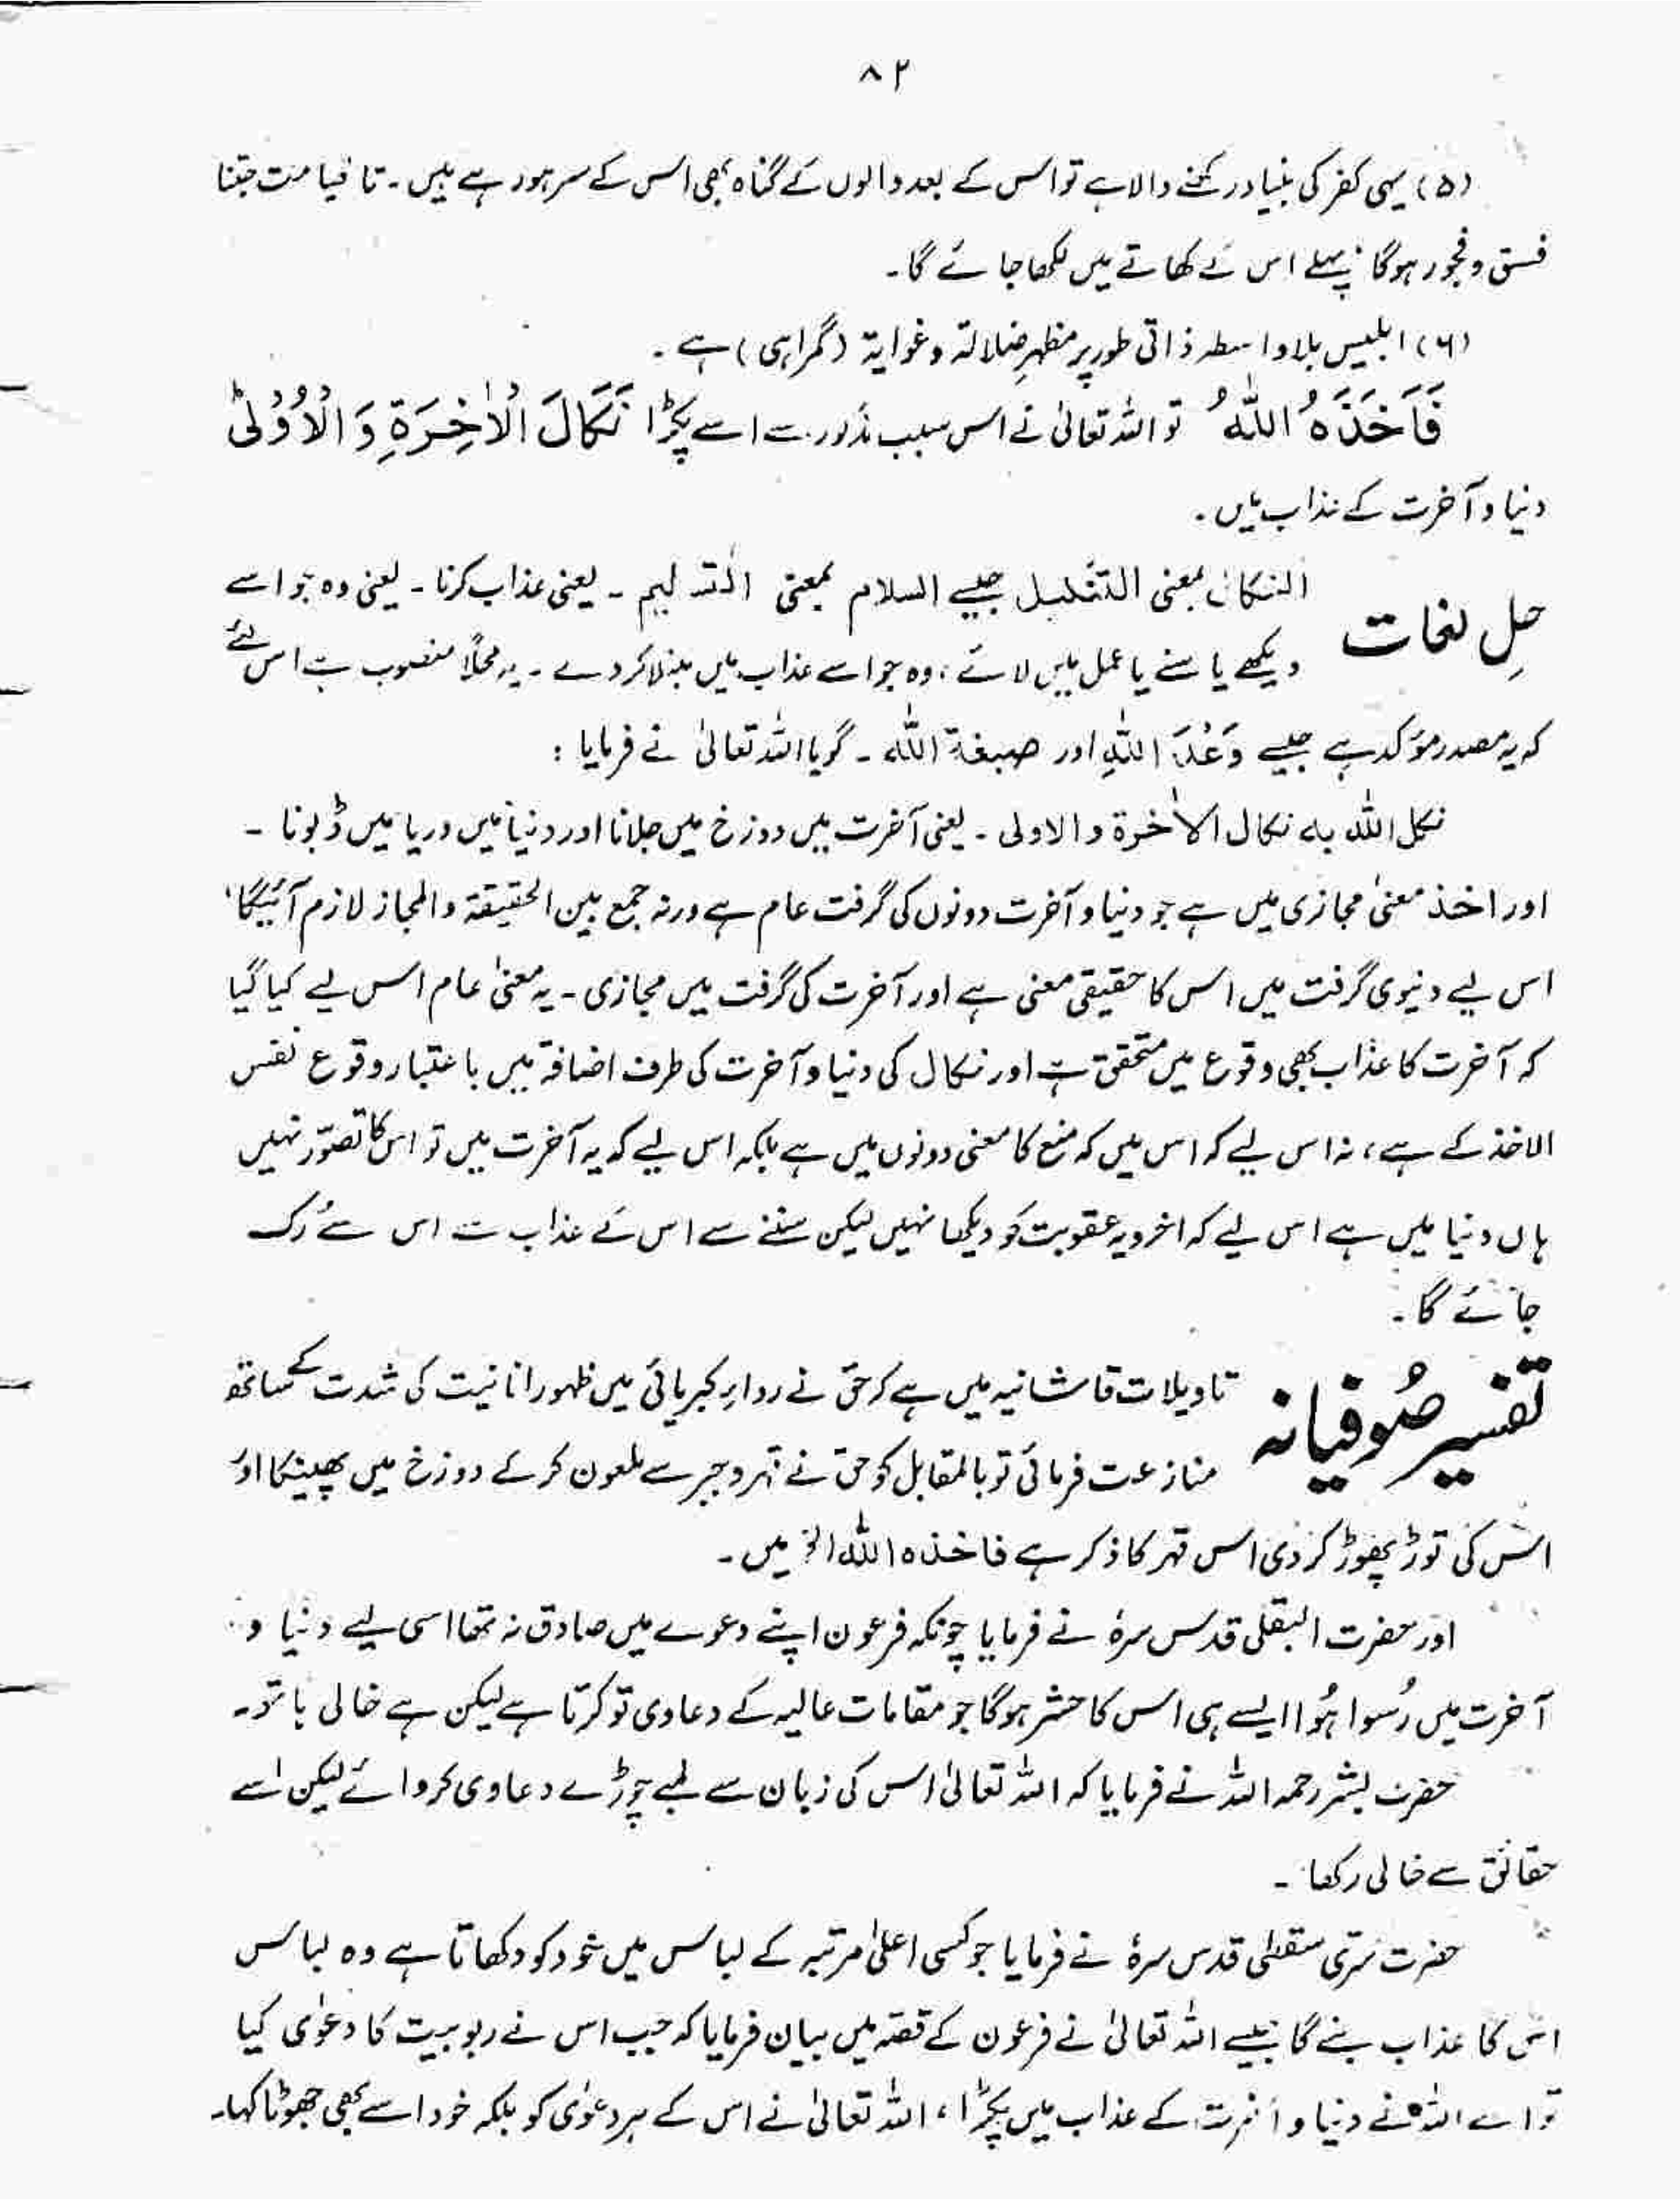 ۸۲
(۵) یہی کفر کی بنیاد رکھنے والا ہے تو اس کے بعد والوں کے گناہ بھی اس کے سر ہو رہے ہیں ۔ تا قیامت جتنا
فسق و فجور ہوگا پہلے اس کے کھاتے میں لکھا جائے گا ۔
(۶) ابلیس بلا واسطہ ذاتی طور پر مظہرِ ضلالۃ و غوایۃ (گمراہی) ہے ۔
فَاَخَذَہُ اللّٰہُ تو اللہ تعالیٰ نے اس سبب مذکور سے اسے پکڑا نَکَالَ الْاٰخِرَۃِ وَ الْاُوْلٰی
دنیا و آخرت کے عذاب میں ۔
حلِ لغات
النکال بمعنی التنکیل جیسے السلام بمعنی التسلیم ۔ یعنی عذاب کرنا ۔ یعنی وہ جو اسے
دیکھے یا سنے یا عمل میں لائے ، وہ جو اسے عذاب میں مبتلا کر دے ۔ یہ محلاً منصوب ہے اس لئے
کہ یہ مصدر مؤکد ہے جیسے وَعْدَ اللّٰہِ اور صبغۃ اللّٰہ ۔ گویا اللہ تعالیٰ نے فرمایا :
نکل اللّٰہ بہ نکال الاٰخرۃ و الاولی ۔ یعنی آخرت میں دوزخ میں جلانا اور دنیا میں دریا میں ڈبونا ۔
اور اخذ معنیٰ مجازی میں ہے جو دنیا و آخرت دونوں کی گرفت عام ہے ورنہ جمع بین الحقیقۃ و المجاز لازم آئیگا،
اس لیے دنیوی گرفت میں اس کا حقیقی معنی ہے اور آخرت کی گرفت میں مجازی ۔ یہ معنیٰ عام اس لیے کیا گیا
کہ آخرت کا عذاب بھی وقوع میں متحقق ہے اور نکال کی دنیا و آخرت کی طرف اضافۃ میں باعتبار وقوع نفس
الاخذ کے ہے ، نہ اس لیے کہ اس میں کہ منع کا معنی دونوں میں ہے بلکہ اس لیے کہ یہ آخرت میں تو اس کا تصوّر نہیں
ہاں دنیا میں ہے اس لیے کہ اخرویہ عقوبت کو دیکھا نہیں لیکن سننے سے اس کے عذاب سے اس سے رُک
جائے گا ۔
تفسیر صُوفیانہ
تاویلات قاشانیہ میں ہے کہ حق نے رداءِ کبریائی میں ظہور انانیت کی شدت کے ساتھ
منازعت فرمائی تو بالمقابل کو حق نے قہر و جبر سے ملعون کر کے دوزخ میں پھینکا اور
اس کی توڑ پھوڑ کر دی اس قہر کا ذکر ہے فاخذہ اللّٰہ الخ میں ۔
اور حضرت البقلی قدس سرہٗ نے فرمایا چونکہ فرعون اپنے دعوے میں صادق نہ تھا اسی لیے دنیا و
آخرت میں رُسوا ہُوا ایسے ہی اس کا حشر ہوگا جو مقامات عالیہ کے دعاوی تو کرتا ہے لیکن ہے خالی ہاتھ ۔
حضرت بشر رحمہ اللہ نے فرمایا کہ اللہ تعالیٰ اس کی زبان سے لمبے چوڑے دعاوی کروائے لیکن اُسے
حقائق سے خالی رکھا ۔
حضرت سَرّی سقطی قدس سرہٗ نے فرمایا جو کسی اعلیٰ مرتبہ کے لباس میں خود کو دکھاتا ہے وہ لباس
اس کا عذاب بنے گا جیسے اللہ تعالیٰ نے فرعون کے قصّہ میں بیان فرمایا کہ جب اس نے ربوبیت کا دعوٰی کیا
تو اسے اللہ نے دنیا و آخرت کے عذاب میں پکڑا ، اللہ تعالیٰ نے اس کے ہر دعوٰی کو بلکہ خود اسے بھی جھوٹا کہا ۔